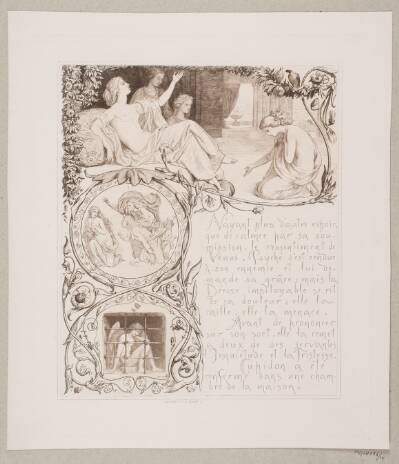 N'ayant plus d'autre espoir
que de calmer par sa sou-
mission, le ressentiment de
Vénus, Psyché s'est rendue
à son ennemie et lui de-
mande sa grâce; mais la
Déesse impitoyable se rit
de sa douleur; elle la
raille, elle la menace.
Avant de prononcer
sur son sort, elle la remet
à deux de ses servantes
l'Inquiétude et la Tristesse.
Cupidon a été
enfermé dans une cham-
bre de la maison.